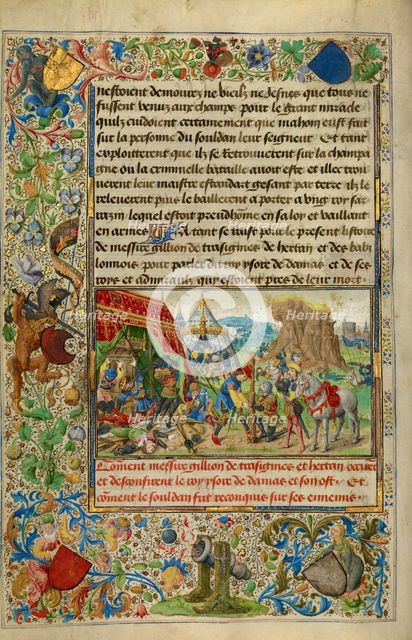 nestoient demourez ne vieilz ne Jesnes que tous ne
fussent venuz aux champz pour le grant miracle
quilz cuidoient certainement que mahon eust fait
sur la personne du souldan leur seigneur Et tant
exploitterent que ilz se retrouverent sur la champai
gne ou la criminelle bataille avoit este et illec trou
verent leur maistre estandart gesant par terre ilz le
releverent puis le baillerent a porter a ung roy sar
razin lequel estoit preudhome en sa loy et vaillant
en armes A tant se taist pour le present listoire
de messire gillion de trasignies de hertan et des babi
lonnois pour parler du roy ysore de damas et de ses
roys et admiraulx qui estoient pres de leur mort
Heritage
Heritage
Heritage
Heritage
Coment messire gillion de trasignies et hertan
et desconfirent le roy ysore de damas et son ost Et
coment le souldan fut recouquis sur ses ennemis